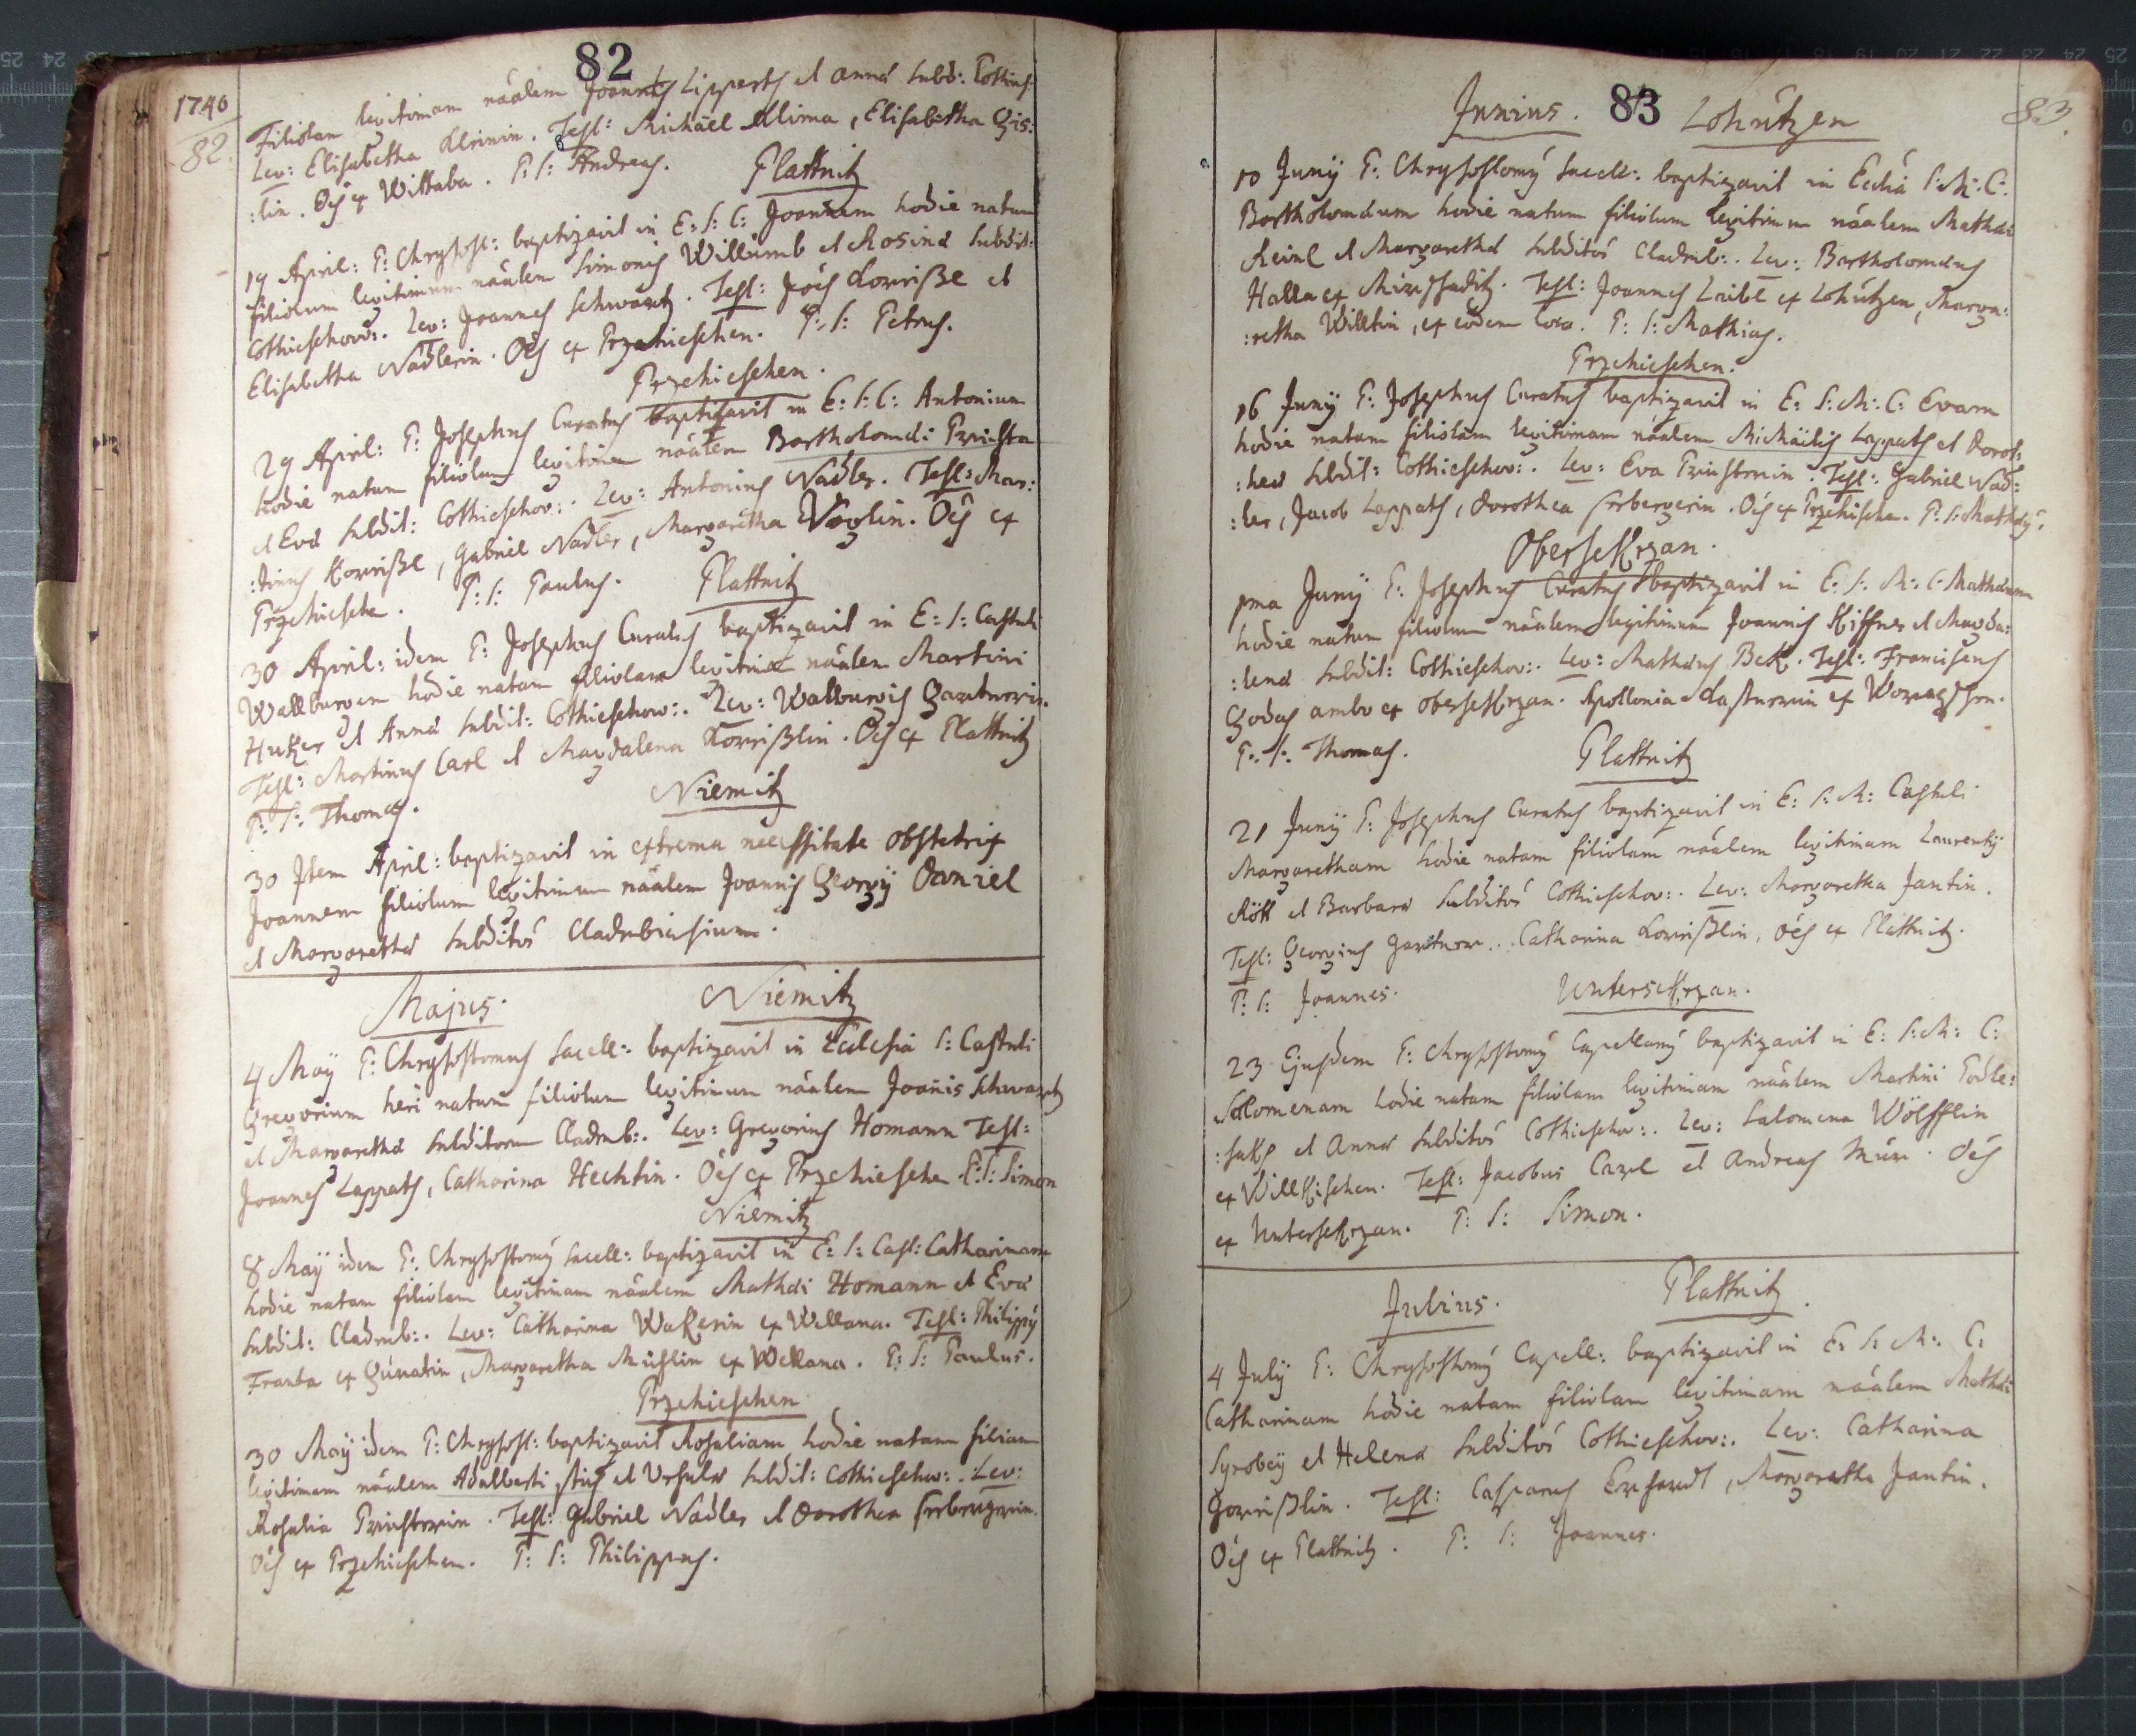 82
1746
82.
Filiolam legitimam nāalem Joannis Lipperts et Anna subd: Cothiesch:
Lev: Elisabetha Test: Michäel Klima, Elisabetha Gis:
:lin. Oēs ex Wittaba. P: S: Andreas.
Plattnitz
19 April: P: Chrysost: baptizavit in E: S: C: Joannem hodie natum
filiolum legitimum nāalem Simonis Willumb et Rosina subdit:
Cothieschov:. Lev: Joannes Schwartz. Test: Joēs Lorrißl et
Elisabetha Nadlerin. Oēs ex Przehieschen. P: S: Petrus.
Przehieschen.
29 April: P: Josephus Curatus baptisavit in E: S: C: Antonium
hodie natum filiolum legitimum nāalem Bartholomæi
et Eva subdit: Cothieschov:. Lev: Antonius Nadler. Test: Mar:
:tinus Korrißl, Gabriel Nadler, Margaretha Voglin. Oēs ex
Przehiesche. P: S: Paulus.
Plattnitz
30 April: idem P: Josephus Curatus baptizavit in E: S: Castuli
Wallburgam hodie natam filiolam legitima nāalem Martini
Huker et Anna subdit: Cothieschow:. Lev: Walburgis
Test: Martinus Carl et Magdalena Lorrißlin. Oēs ex Plattnitz
P: S: Thomas.
Niemitz
30 Item April: baptizavit in extrema necessitate obstetrix
Joannem filiolum legitimum nāalem Joannis Georgÿ Daniel
et Margaretha subditōr Cladrubiensium.
Majus. Niemitz
4 Maÿ P: Chrysostomus Sacell: baptizavit in Ecclesia S: Castuli
Gregorium heri natum filiolum legitimum nāalem Joānis Schwartz
et Margaretha subditorum Cladrub:. Lev: Gregorius Homann Test:
Joannes Lappats, Catharina Hechtin. Oēs ex Przehiesche P: S: Simon
Niemitz
8 Maÿ idem P: Chrysostomꝯ Sacell: baptizavit in E: S: Cast: Catharinam
hodie natam filiolam legitimam nāalem Mathæi Homann et Eva
subdit: Cladrub:. Lev: Catharina Wakerin ex Wellana. Test: Philippꝯ
Franta ex, Margaretha ex Wellana. P: S: Paulus.
Przehieschen
30 Maÿ idem P: Chrysost: baptizavit Rosaliam hodie natam filiam
legitimam nāalem Adalberti et Ursula subdit: Cothieschov:. Lev:
Rosalia. Test: Gabriel Nadler et Dorothea
Oēs ex Przehieschen. P: S: Philippus.
Junius. 83 Lohützen
83.
10 Junÿ P: Chrysostomꝯ Sacell: baptizavit in Ecclīa S: M: C:
Bartholomæum hodie natum filiolum legitimum nāalem Mathæi
Reinl et Margaretha subditōr Cladrub:. Lev: Bartholomæus
Halla ex. Test: Joannes Laibl ex Lohützen, Marga:
:retha Willtin, ex eodem loco. P: S: Mathias.
Przehieschen.
16 Junÿ P: Josephus Curatus baptizavit in E: S: M: C: Evam
hodie natam filiolam legitimam nāalem Michäelis Lappats et Dorot:
:hea subdit: Cothieschov:. Lev: Eva. Test: Gabriel Nad:
:ler, Jacob Lappats, Dorothea. Oēs ex Przehische. P: S:
Obersekrzan.
1ma Junÿ P: Josephus Curatus baptizavit in E: S: M: C: Mathæum
hodie natum filiolum nāalem legitimum Joannis Kiffner et Magda:
:lena subdit: Cothieschov:. Lev: Mathæus Bek. Test: Franciscus
Godas ambo ex Obersekrzan. Apollonia ex
P: S: Thomas.
Plattnitz
21 Junÿ P: Josephus Curatus baptizavit in E: S: M: Castuli
Margaretham hodie natam filiolam nāalem legitimam Laurentÿ
Rött et Barbara subditōr Cothieschov:. Lev: Margaretha Jantin.
Test: Georgius, Catharina Lorrißlin, oēs ex Plattnitz.
P: S: Joannes.
Untersekrzan.
23 Ejusdem P: Chrysostomꝯ Capellanꝯ baptizavit in E: S: M: C:
Solomenam hodie natam filiolam legitimam nāalem Martini Podle:
:sak et Anna subditōr Cothieschov:. Lev: Salomena Wölfflin
ex Willkischen. Test: Jacobus Carl et Andreas. Oēs
ex Untersekrzan. P: S: Simon.
Julius. Plattnitz.
4 Julÿ P: Chrysostomꝯ Capell: baptizavit in E: S: M: C:
Catharinam hodie natam filiolam legitimam nāalem Mathæi
et Helena subditōr Cothieschov:. Lev: Catharina
Test: Casparus, Margaretha Jantin.
Oēs ex Plattnitz. P: S: Joannes.